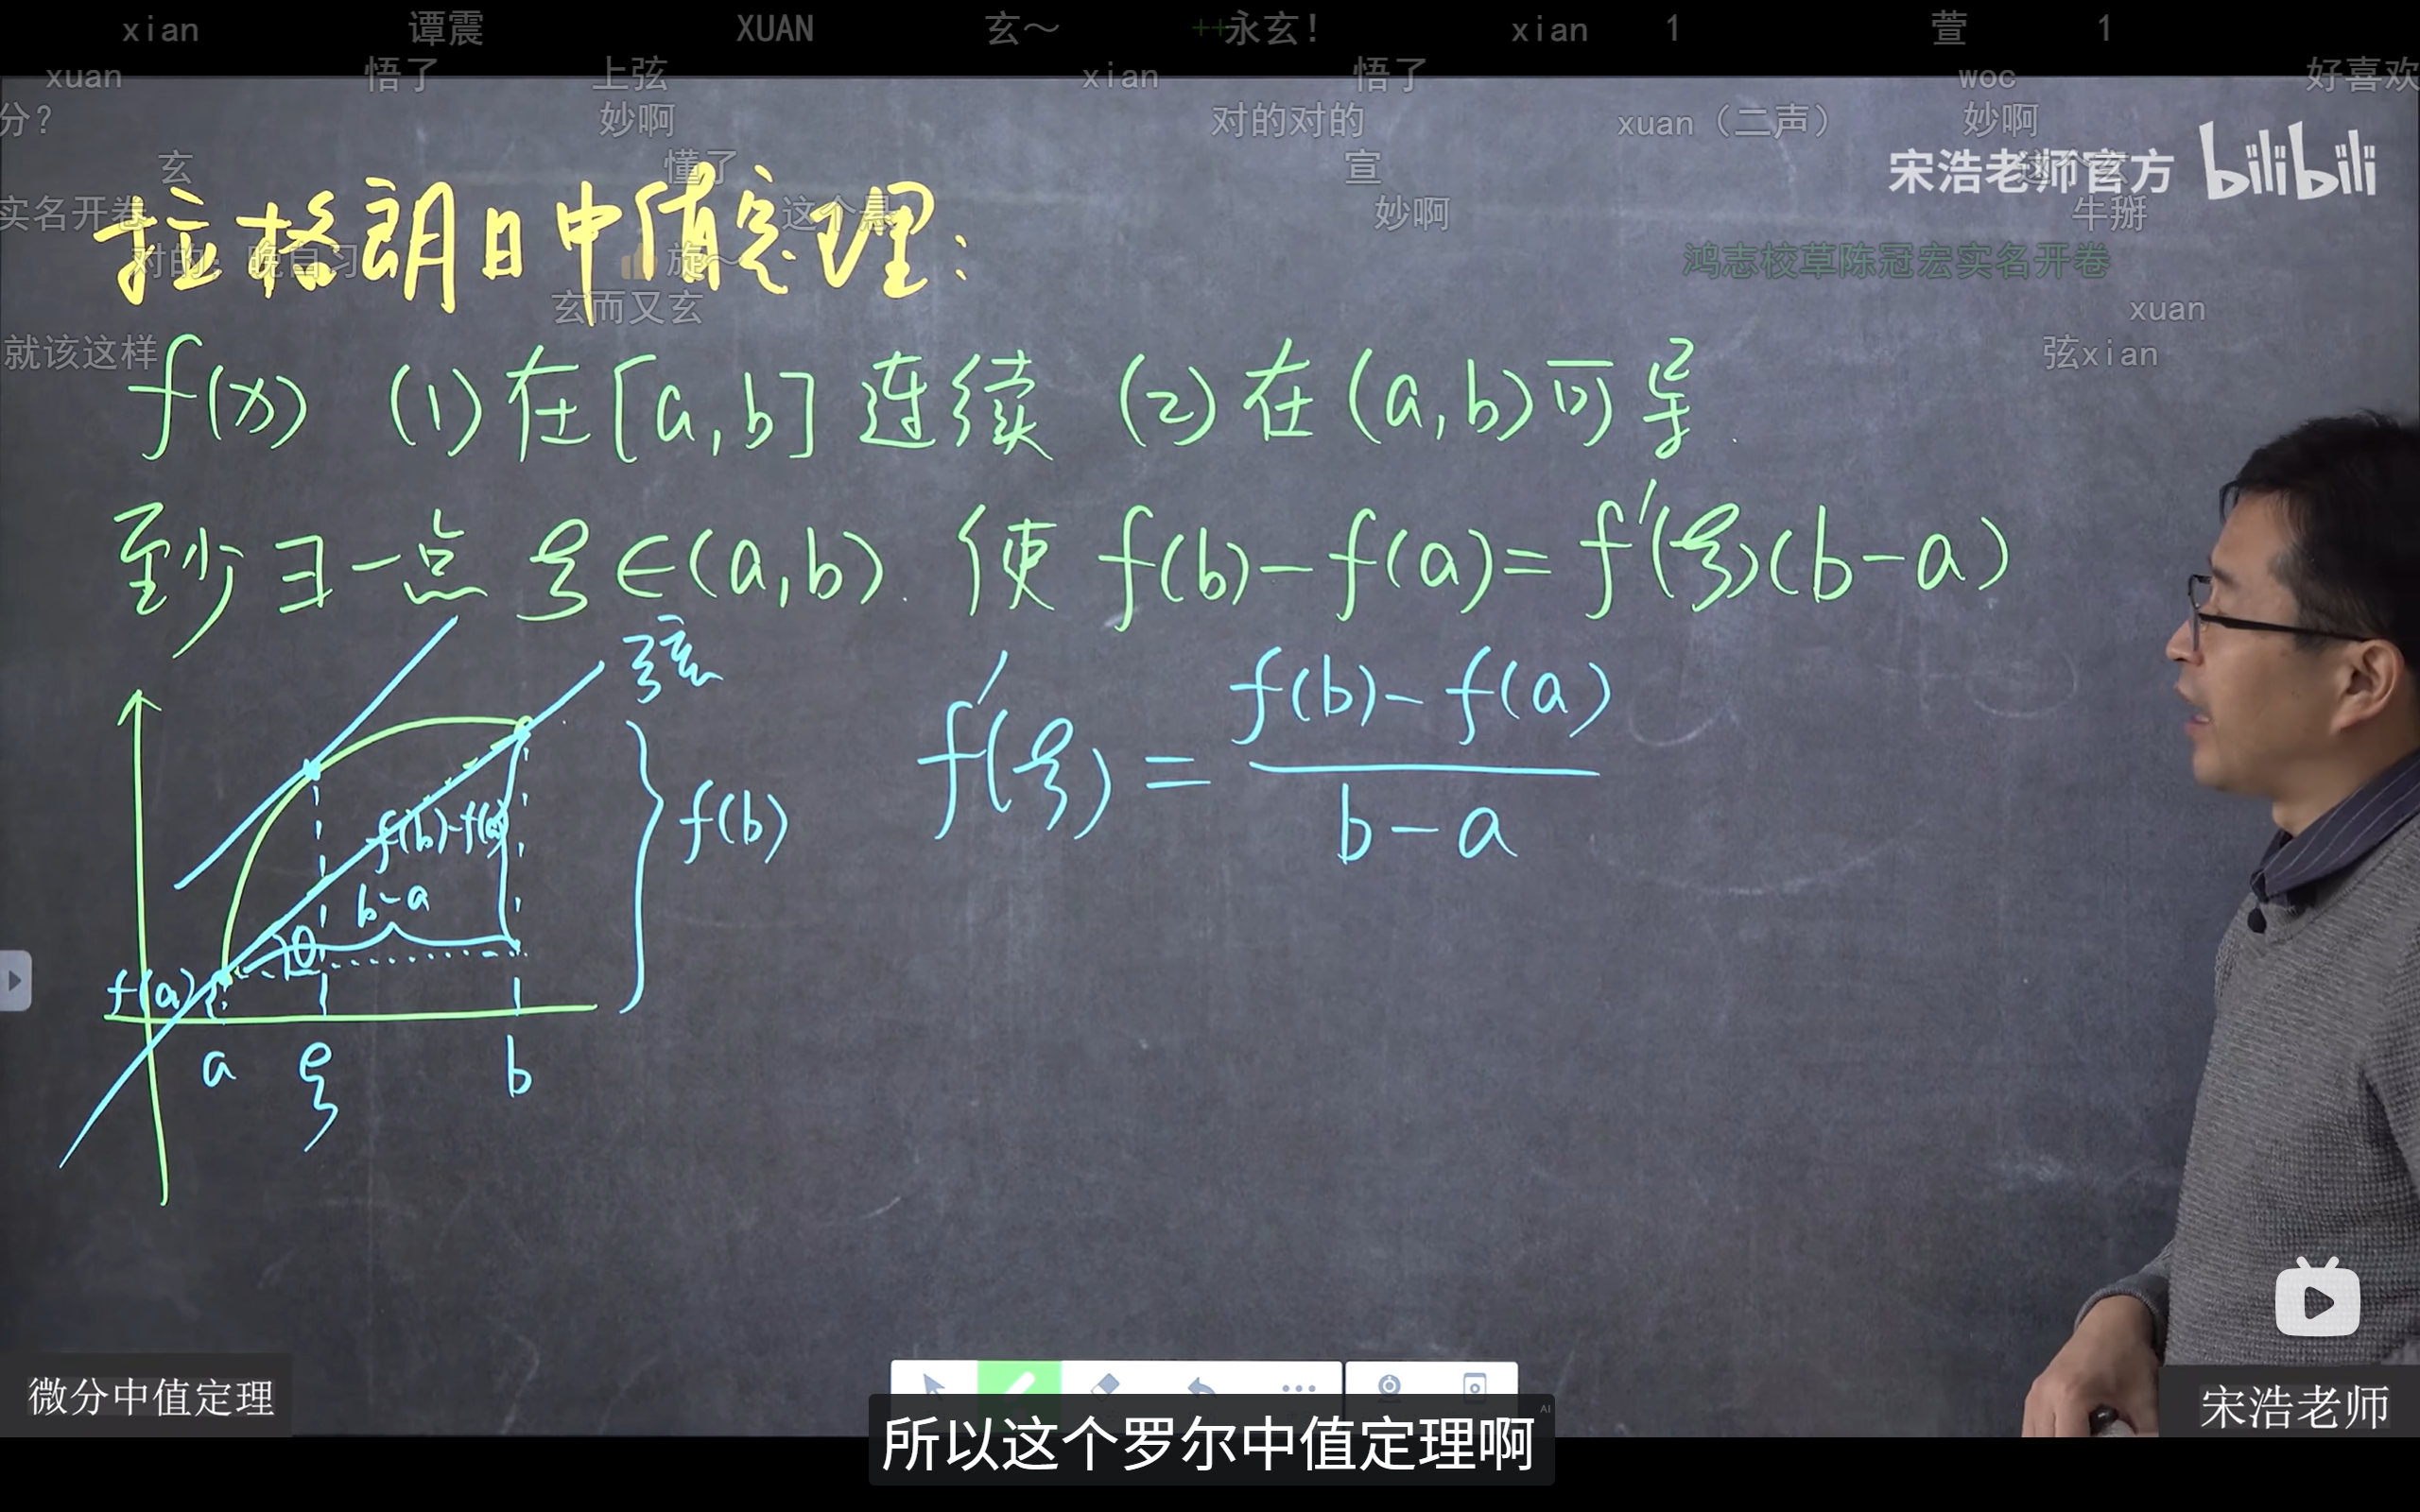 xian 谭震 XUAN 玄～ ++永玄！ xian 1 萱 1
xuan 悟了 上弦 xian 悟了 woc 好喜欢
分？ 妙啊 对的对的 xuan（二声） 妙啊
玄 懂了 宣
宋浩老师官方 bilibili
实名开卷 这个悬 妙啊 牛掰
拉格朗日中值定理：
对的，晚自习 旋～ 鸿志校草陈冠宏实名开卷
玄而又玄 xuan
就该这样 弦xian
f(x) (1)在[a,b]连续 (2)在(a,b)可导.
至少∃一点 ξ∈(a,b). 使 f(b)-f(a)=f'(ξ)(b-a)
弦
f'(ξ) = f(b)-f(a)
b-a
f(b)-f(a)
f(b)
b-a
θ
f(a)
a ξ b
微分中值定理
宋浩老师
AI
所以这个罗尔中值定理啊